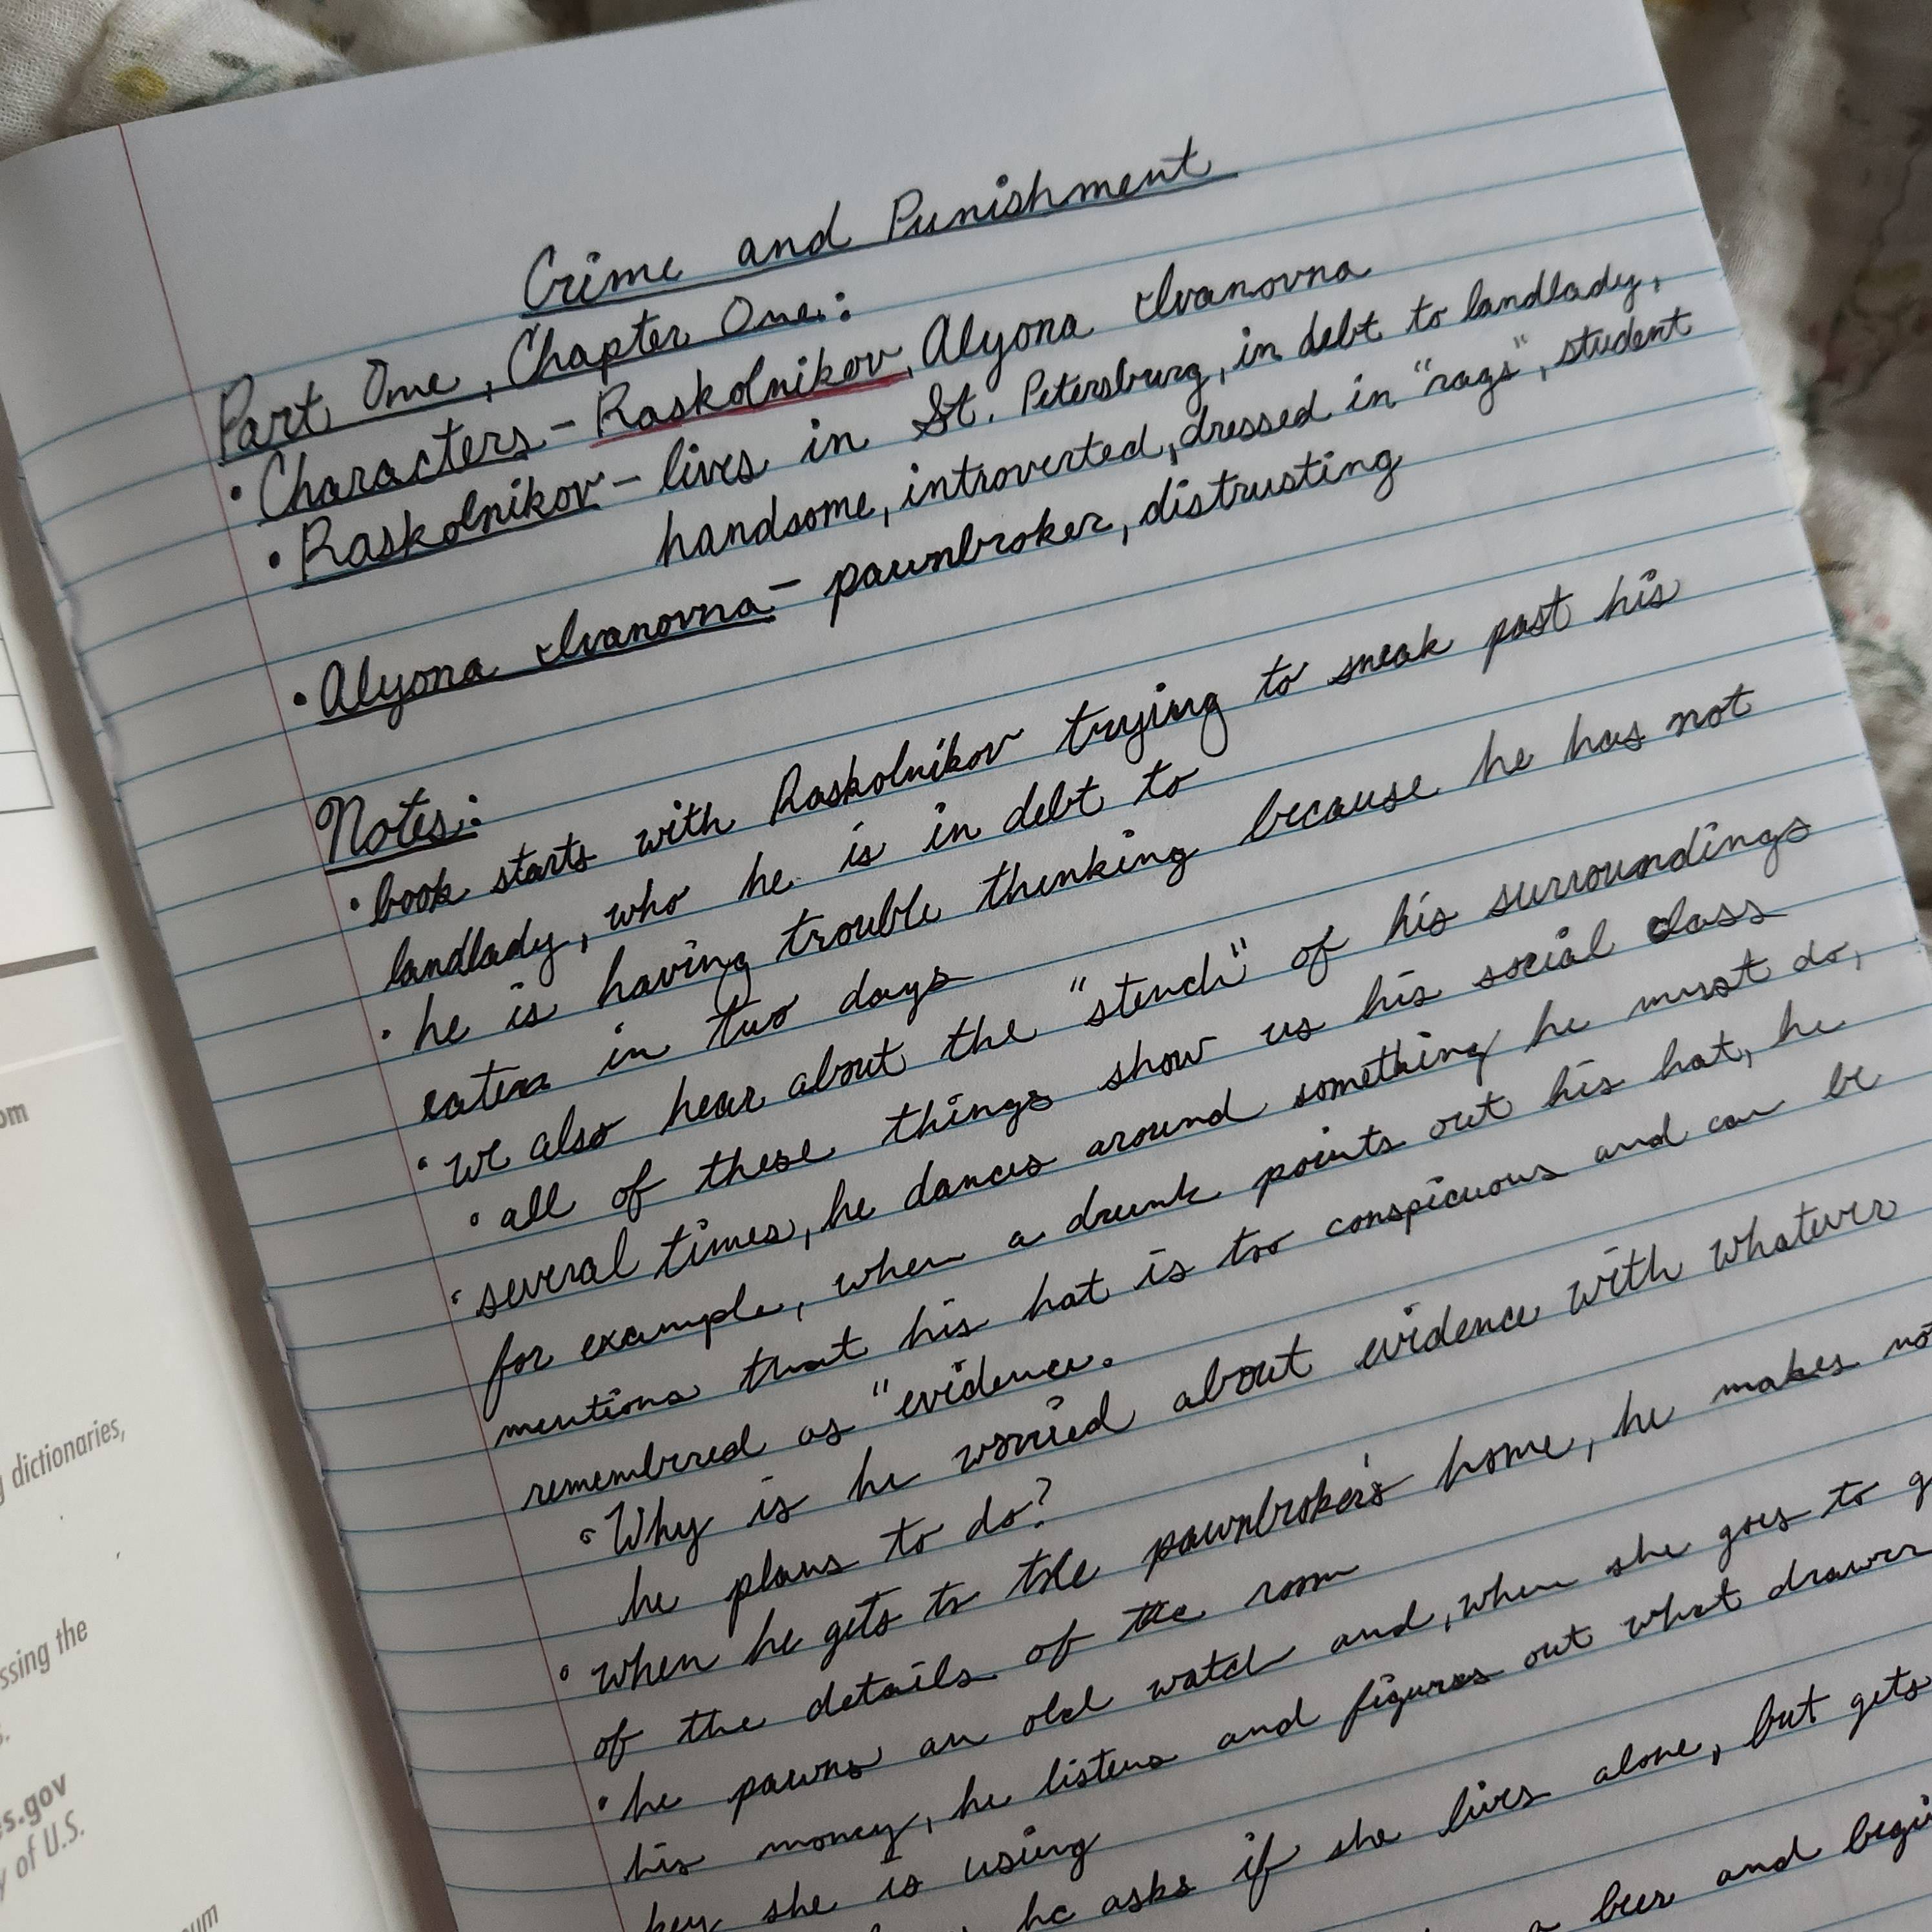 Crime and Punishment
Part One, Chapter One:
• Characters - Raskolnikov, Alyona Ivanovna
• Raskolnikov - lives in St. Petersburg, in debt to landlady,
handsome, introverted, dressed in "rags", student
• Alyona Ivanovna - pawnbroker, distrusting
Notes:
• book starts with Raskolnikov trying to sneak past his
landlady, who he is in debt to
• he is having trouble thinking because he has not
eaten in two days
• we also hear about the "stench" of his surroundings
• all of these things show us his social class
• several times, he dances around something he must do,
for example, when a drunk points out his hat, he
mentions that his hat is too conspicuous and can be
remembered as "evidence.
• Why is he worried about evidence with whatever
he plans to do?
• when he gets to the pawnbroker's home, he makes
of the details of the room
• he pawns an old watch and, when she goes to
his money, he listens and figures out what drawer
key she is using
he asks if she lives alone, but gets
a beer and
om
dictionaries,
ssing the
s.gov
of U.S.
um